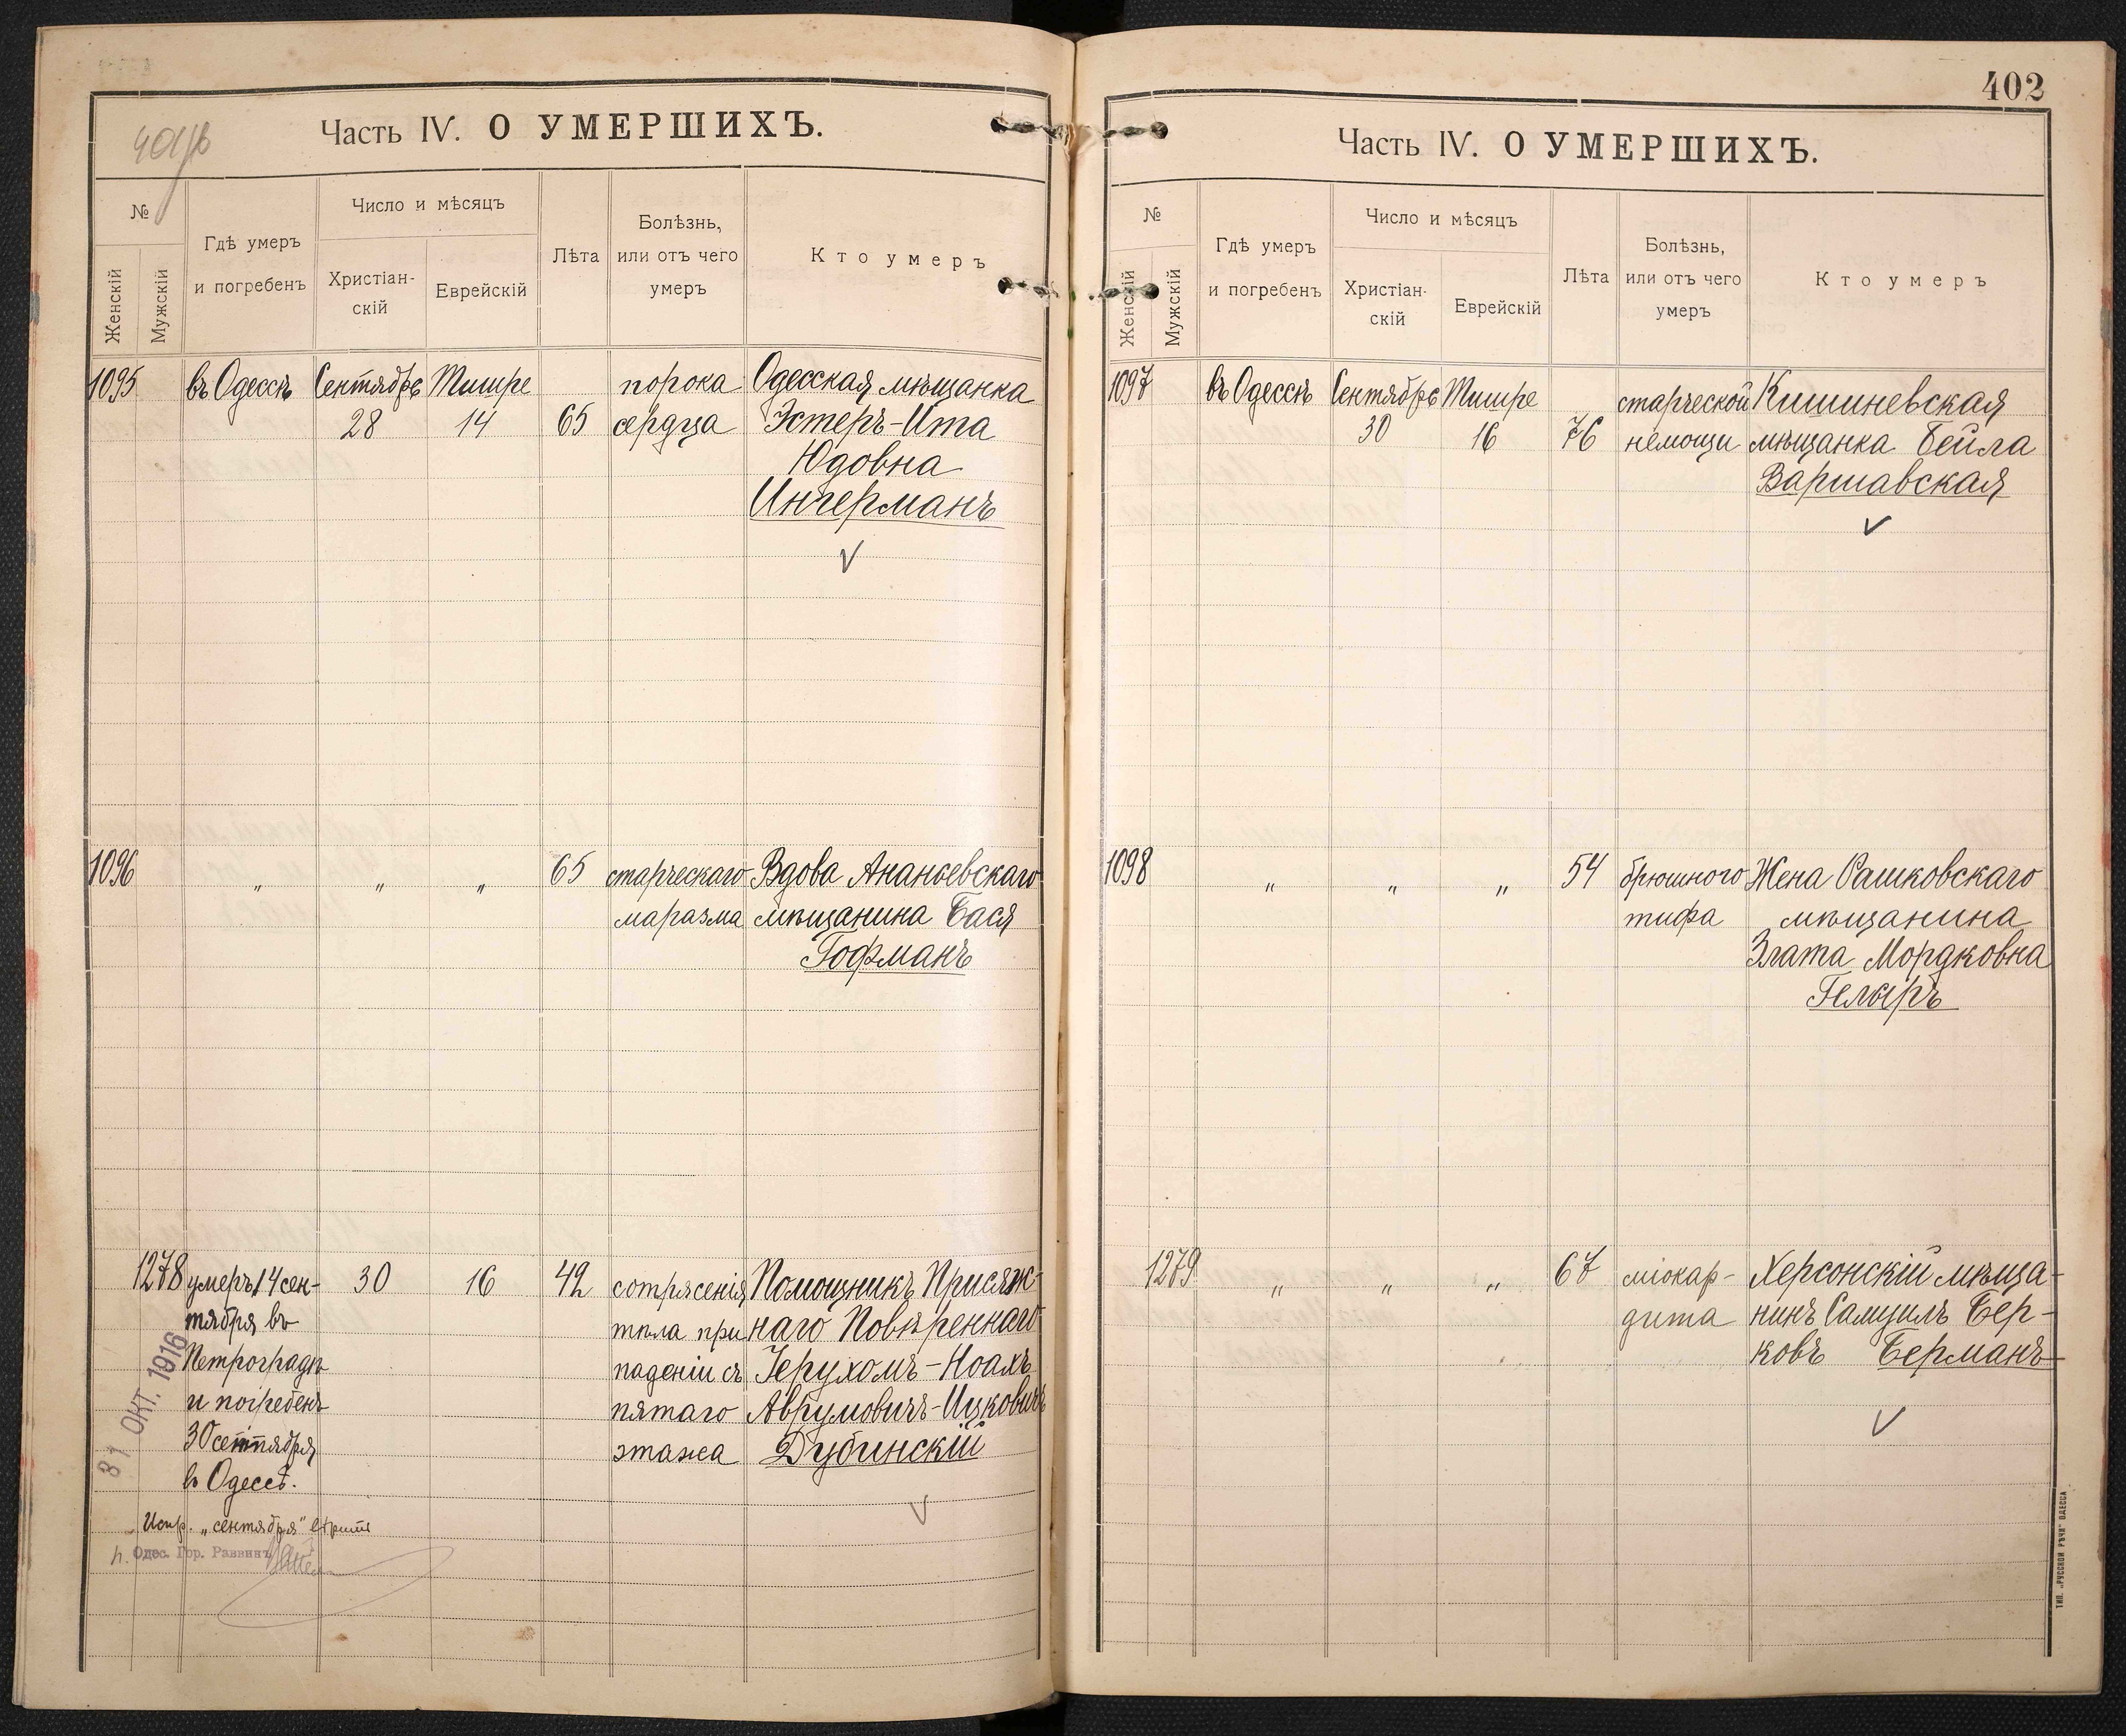 Часть IV. О УМЕРШИХЪ.
№
Женскій
Мужскій
Гдѣ умеръ
и погребенъ
Число и мѣсяцъ
Христіан-
скій
Еврейскій
Лѣта
Болѣзнь,
или отъ чего
умеръ
Кто умеръ
1095 въ Одессѣ Сентябрь Тишре порока Одесская мѣщанка
28 14 65 сердца Эстеръ-Ита
Юдовна
Ингерманъ
1096 „ „ „ 65 старческаго Вдова Ананьевскаго
маразма мѣщанина Бася
Гофманъ
1278 умеръ 14 сен- 30 16 42 сотрясенія Помощникъ Присяж-
тября въ тѣла при наго Повѣреннаго
Петроградѣ паденіи съ Іерухомъ-Ноахъ
и погребенъ пятаго Аврумовичъ-Ицковичъ
30 сентября этажа Дубинскій
въ Одессѣ.
31 ОКТ. 1916
Испр. „сентября" вѣрить
Одес. Гор. Раввинъ
402
Часть IV. О УМЕРШИХЪ.
№
Женскій
Мужскій
Гдѣ умеръ
и погребенъ
Число и мѣсяцъ
Христіан-
скій
Еврейскій
Лѣта
Болѣзнь,
или отъ чего
умеръ
Кто умеръ
1097 въ Одессѣ Сентябрь Тишре старческой Кишиневская
30 16 76 немощи мѣщанка Бейла
Варшавская
1098 „ „ „ 54 брюшного Жена Рашковскаго
тифа мѣщанина
Злата Мордковна
Гелыръ
1279 „ „ „ 67 міокар- Херсонскій мѣща-
дита нинъ Самуилъ Бер-
ковъ Берманъ
ТИП. „РУССКОЙ РѢЧИ" ОДЕССА